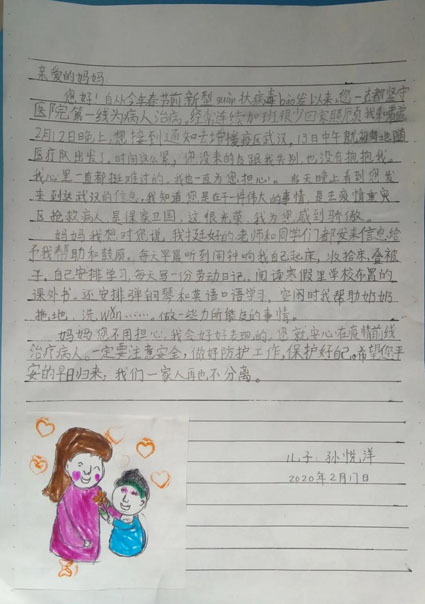 亲爱的妈妈
您好!自从今年春节前新型guān状病毒bào发以来,您一直都坚守
医院第一线为病人治病,经常连续加班很少回家照顾我和
2月12日晚上,您接到通知去增援疫区武汉,13日中午就
医疗队出发了。时间这么紧,你没来的及跟我告别,也没有抱抱我。
我心里一直都挺难过的,我也一直为您担心。当天晚上看到您发
来到达武汉的信息,我知道您是在干一件伟大的事情,是去疫情重灾
区抢救病人,是保家卫国,这很光荣,我为您感到骄傲。
妈妈我想对您说,我挺好的老师和同学们都发来信息给
予我帮助和鼓励。每天早晨听到闹钟响我自己起床,收拾床,叠被
子,自己安排学习,每天写一份劳动日记,阅读寒假里学校布置的
课外书,还安排弹钢琴和英语口语学习,空闲时我帮助奶奶
拖地,洗wǎn……,做一些力所能及的事情。
妈妈您不用担心,我会好好表现的。您就安心在疫情前线
治疗病人。一定要注意安全,做好防护工作,保护好自己。希望您平
安的早日归来,我们一家人再也不分离。
儿子:孙悦洋
2020年2月17日